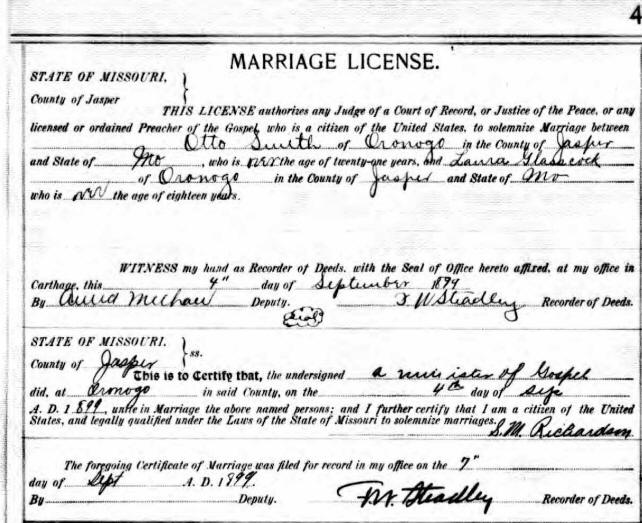 4
MARRIAGE LICENSE.
STATE OF MISSOURI,
County of Jasper
THIS LICENSE authorizes any Judge of a Court of Record, or Justice of the Peace, or any
licensed or ordained Preacher of the Gospel, who is a citizen of the United States, to solemnize Marriage between
Otto Smith of Oronogo in the County of Jasper
and State of Mo, who is over the age of twenty-one years, and Laura Glasscock
of Oronogo in the County of Jasper and State of Mo
who is over the age of eighteen years.
WITNESS my hand as Recorder of Deeds, with the Seal of Office hereto affixed, at my office in
Carthage, this 4" day of September 1899
By Deputy. W Steadley Recorder of Deeds.
Seal
STATE OF MISSOURI,
County of Jasper ss.
This is to Certify that, the undersigned a minister of Gospel
did, at Oronogo in said County, on the 4th day of
A. D. 1899, unite in Marriage the above named persons; and I further certify that I am a citizen of the United
States, and legally qualified under the Laws of the State of Missouri to solemnize marriages.
S. M. Richardson
The foregoing Certificate of Marriage was filed for record in my office on the 7"
day of Sept A. D. 1899.
By Deputy. Steadley Recorder of Deeds.